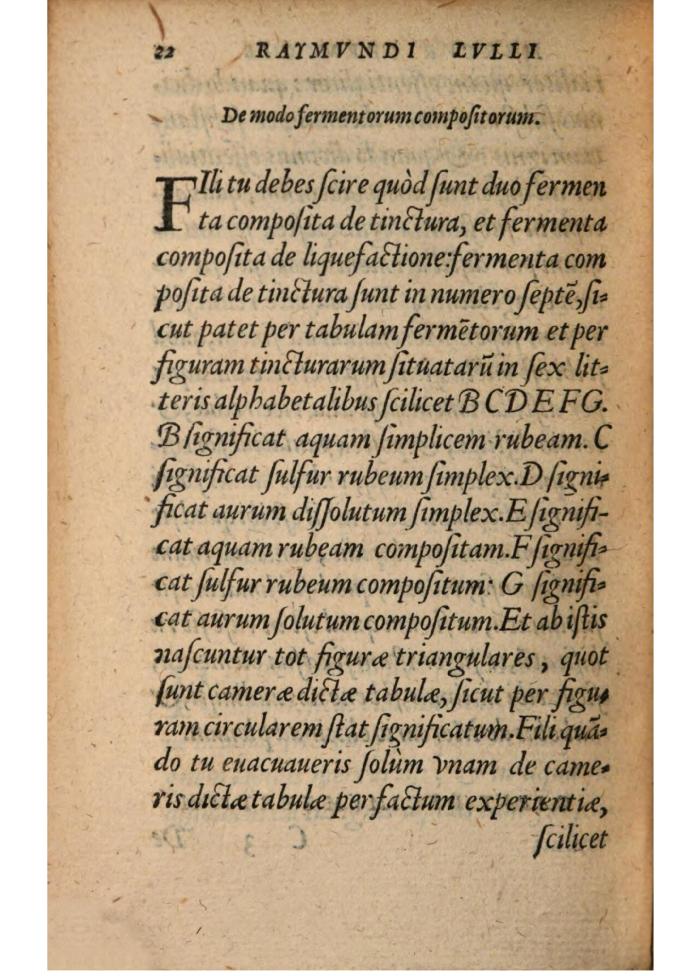 22 RAYMVNDI LVLLI
De modo fermentorum compoſitorum.
FIli tu debes ſcire quòd ſunt duo fermen
ta compoſita de tinctura, et fermenta
compoſita de liquefactione:fermenta com
poſita de tinctura ſunt in numero ſeptẽ,ſi-
cut patet per tabulam fermẽtorum et per
figuram tincturarum ſituatarũ in ſex lit-
teris alphabetalibus ſcilicet B C D E F G.
B ſignificat aquam ſimplicem rubeam. C
ſignificat ſulfur rubeum ſimplex.D ſigni-
ficat aurum diſſolutum ſimplex.E ſignifi-
cat aquam rubeam compoſitam.F ſignifi-
cat ſulfur rubeum compoſitum: G ſignifi-
cat aurum ſolutum compoſitum.Et ab iſtis
naſcuntur tot figuræ triangulares, quot
ſunt cameræ dictæ tabulæ, ſicut per figu-
ram circularem ſtat ſignificatum.Fili quã-
do tu euacuaueris ſolùm vnam de came-
ris dictæ tabulæ per factum experientiæ,
ſcilicet